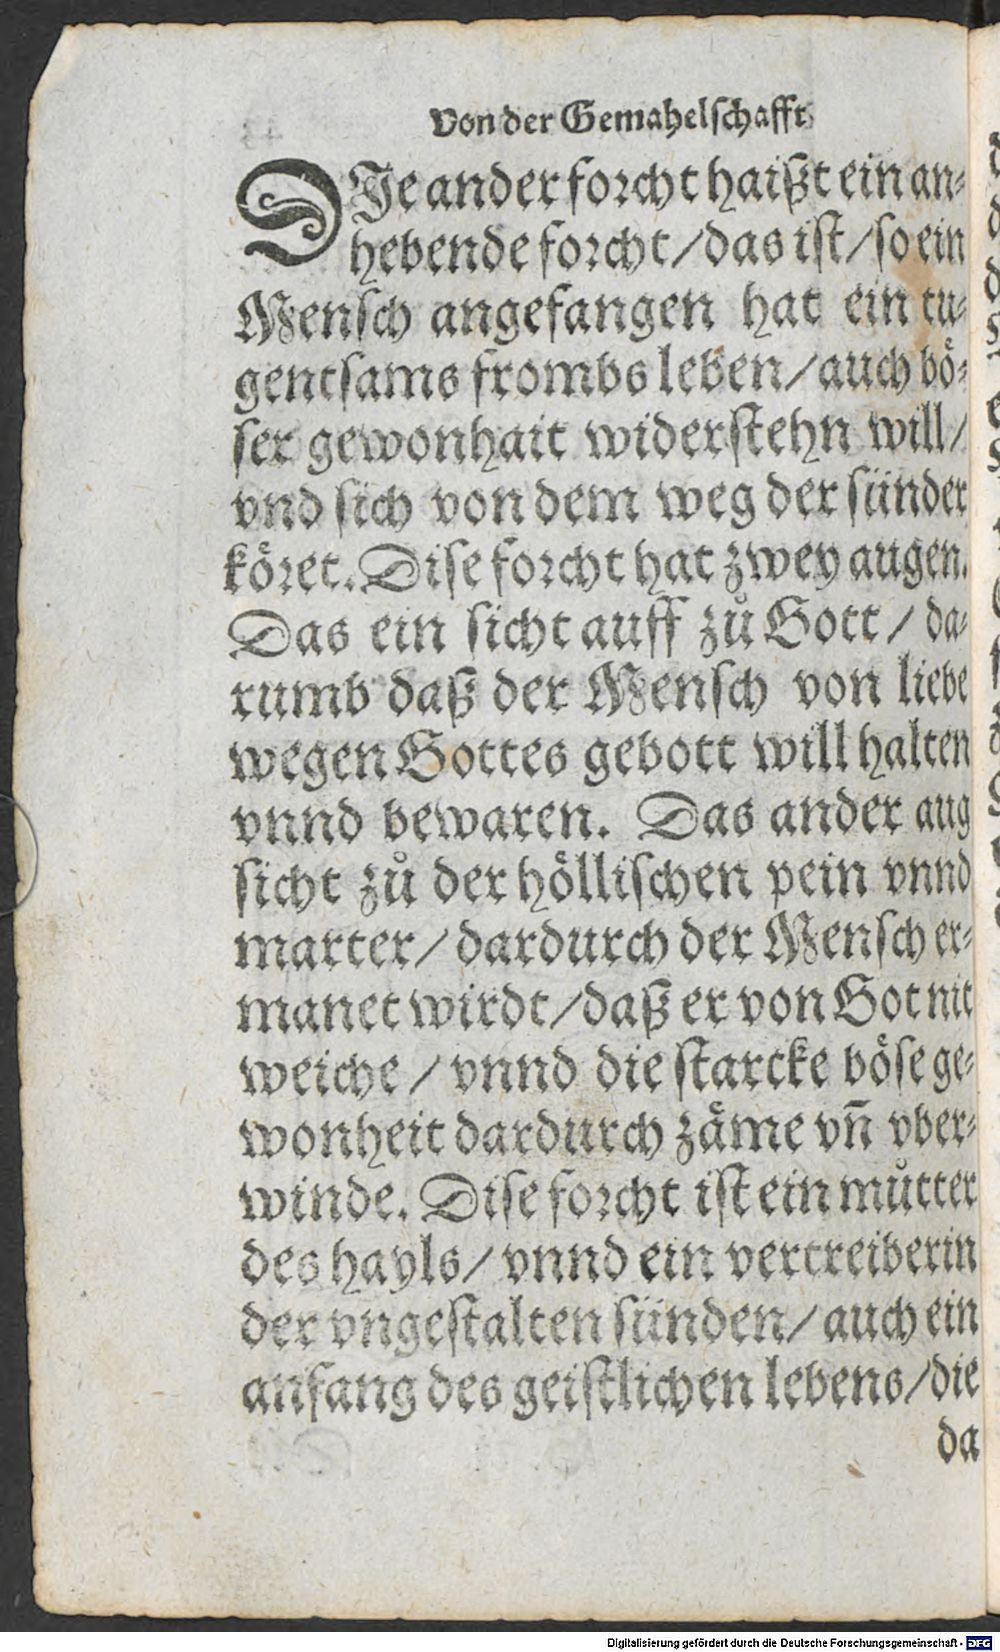 Von der Gemahelschafft
DIe ander forcht haißt ein an-
hebende forcht/das ist/so ein
Mensch angefangen hat ein tu-
gentsams frombs leben/auch bö-
ser gewonhait widerstehn will/
vnd sich von dem weg der sünder
köret. Dise forcht hat zwey augen.
Das ein sicht auff zů Gott/ da-
rumb daß der Mensch von liebe
wegen Gottes gebott will halten
vnnd bewaren. Das ander aug
sicht zů der höllischen pein vnnd
marter/ dardurch der Mensch er-
manet wirdt/daß er von Got nit
weiche/ vnnd die starcke böse ge-
wonheit dardurch zäme vn̄ vber-
winde. Dise forcht ist ein můtter
des hayls/ vnnd ein vertreiberin
der vngestalten sünden/ auch ein
anfang des geistlichen lebens/die
da
Digitalisierung gefördert durch die Deutsche Forschungsgemeinschaft - DFG